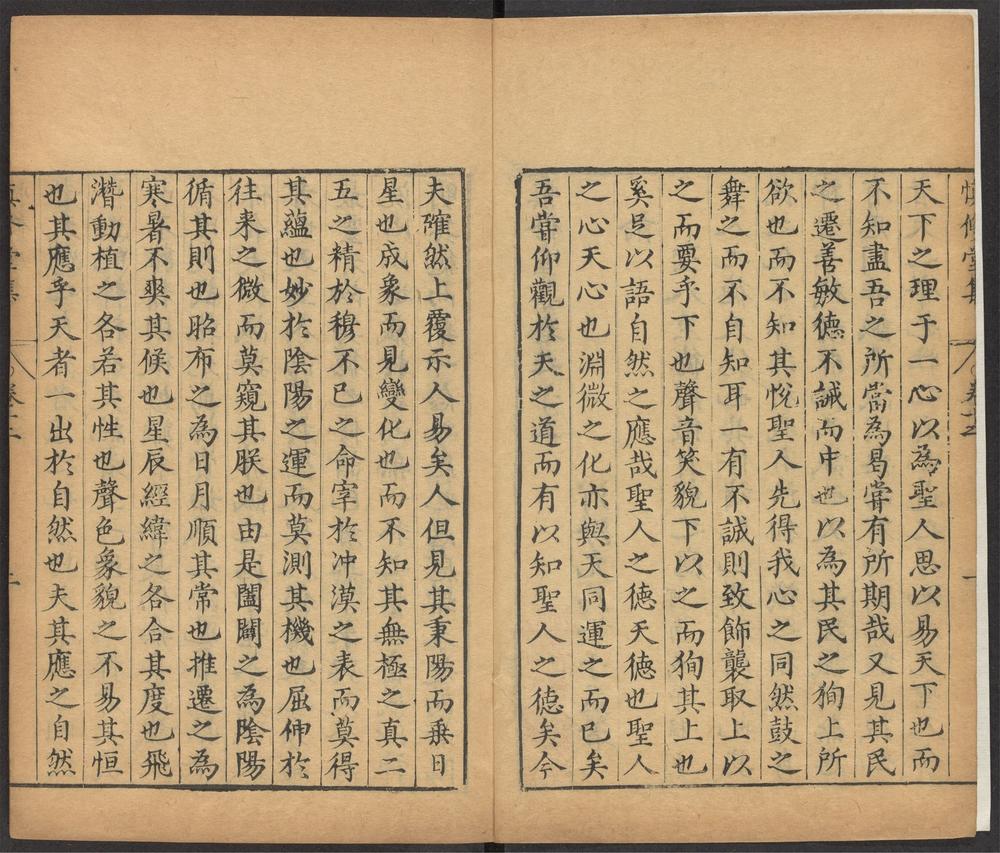 天下之理于一心以為聖人思以易天下也而
不知盡吾之所當為曷嘗有所期哉又見其民
之遷善敏德不誡而中也以為其民之狥上所
欲也而不知其悅聖人先得我心之同然鼓之
舞之而不自知耳一有不誠則致飾襲取上以
之而要乎下也聲音笑貌下以之而狥其上也
奚足以語自然之應哉聖人之德天德也聖人
之心天心也淵微之化亦與天同運之而已矣
吾嘗仰觀於天之道而有以知聖人之德矣今
夫確然上覆示人易矣人但見其秉陽而乗日
星也成象而見變化也而不知其無極之真二
五之精於穆不已之命宰於冲漠之表而莫得
其蘊也妙於陰陽之運而莫測其機也屈伸於
往来之微而莫窺其朕也由是闔闢之為陰陽
循其則也昭布之為日月順其常也推遷之為
寒暑不爽其候也星辰經緯之各合其度也飛
濳動植之各若其性也聲色象貌之不易其恒
也其應乎天者一出於自然也夫其應之自然